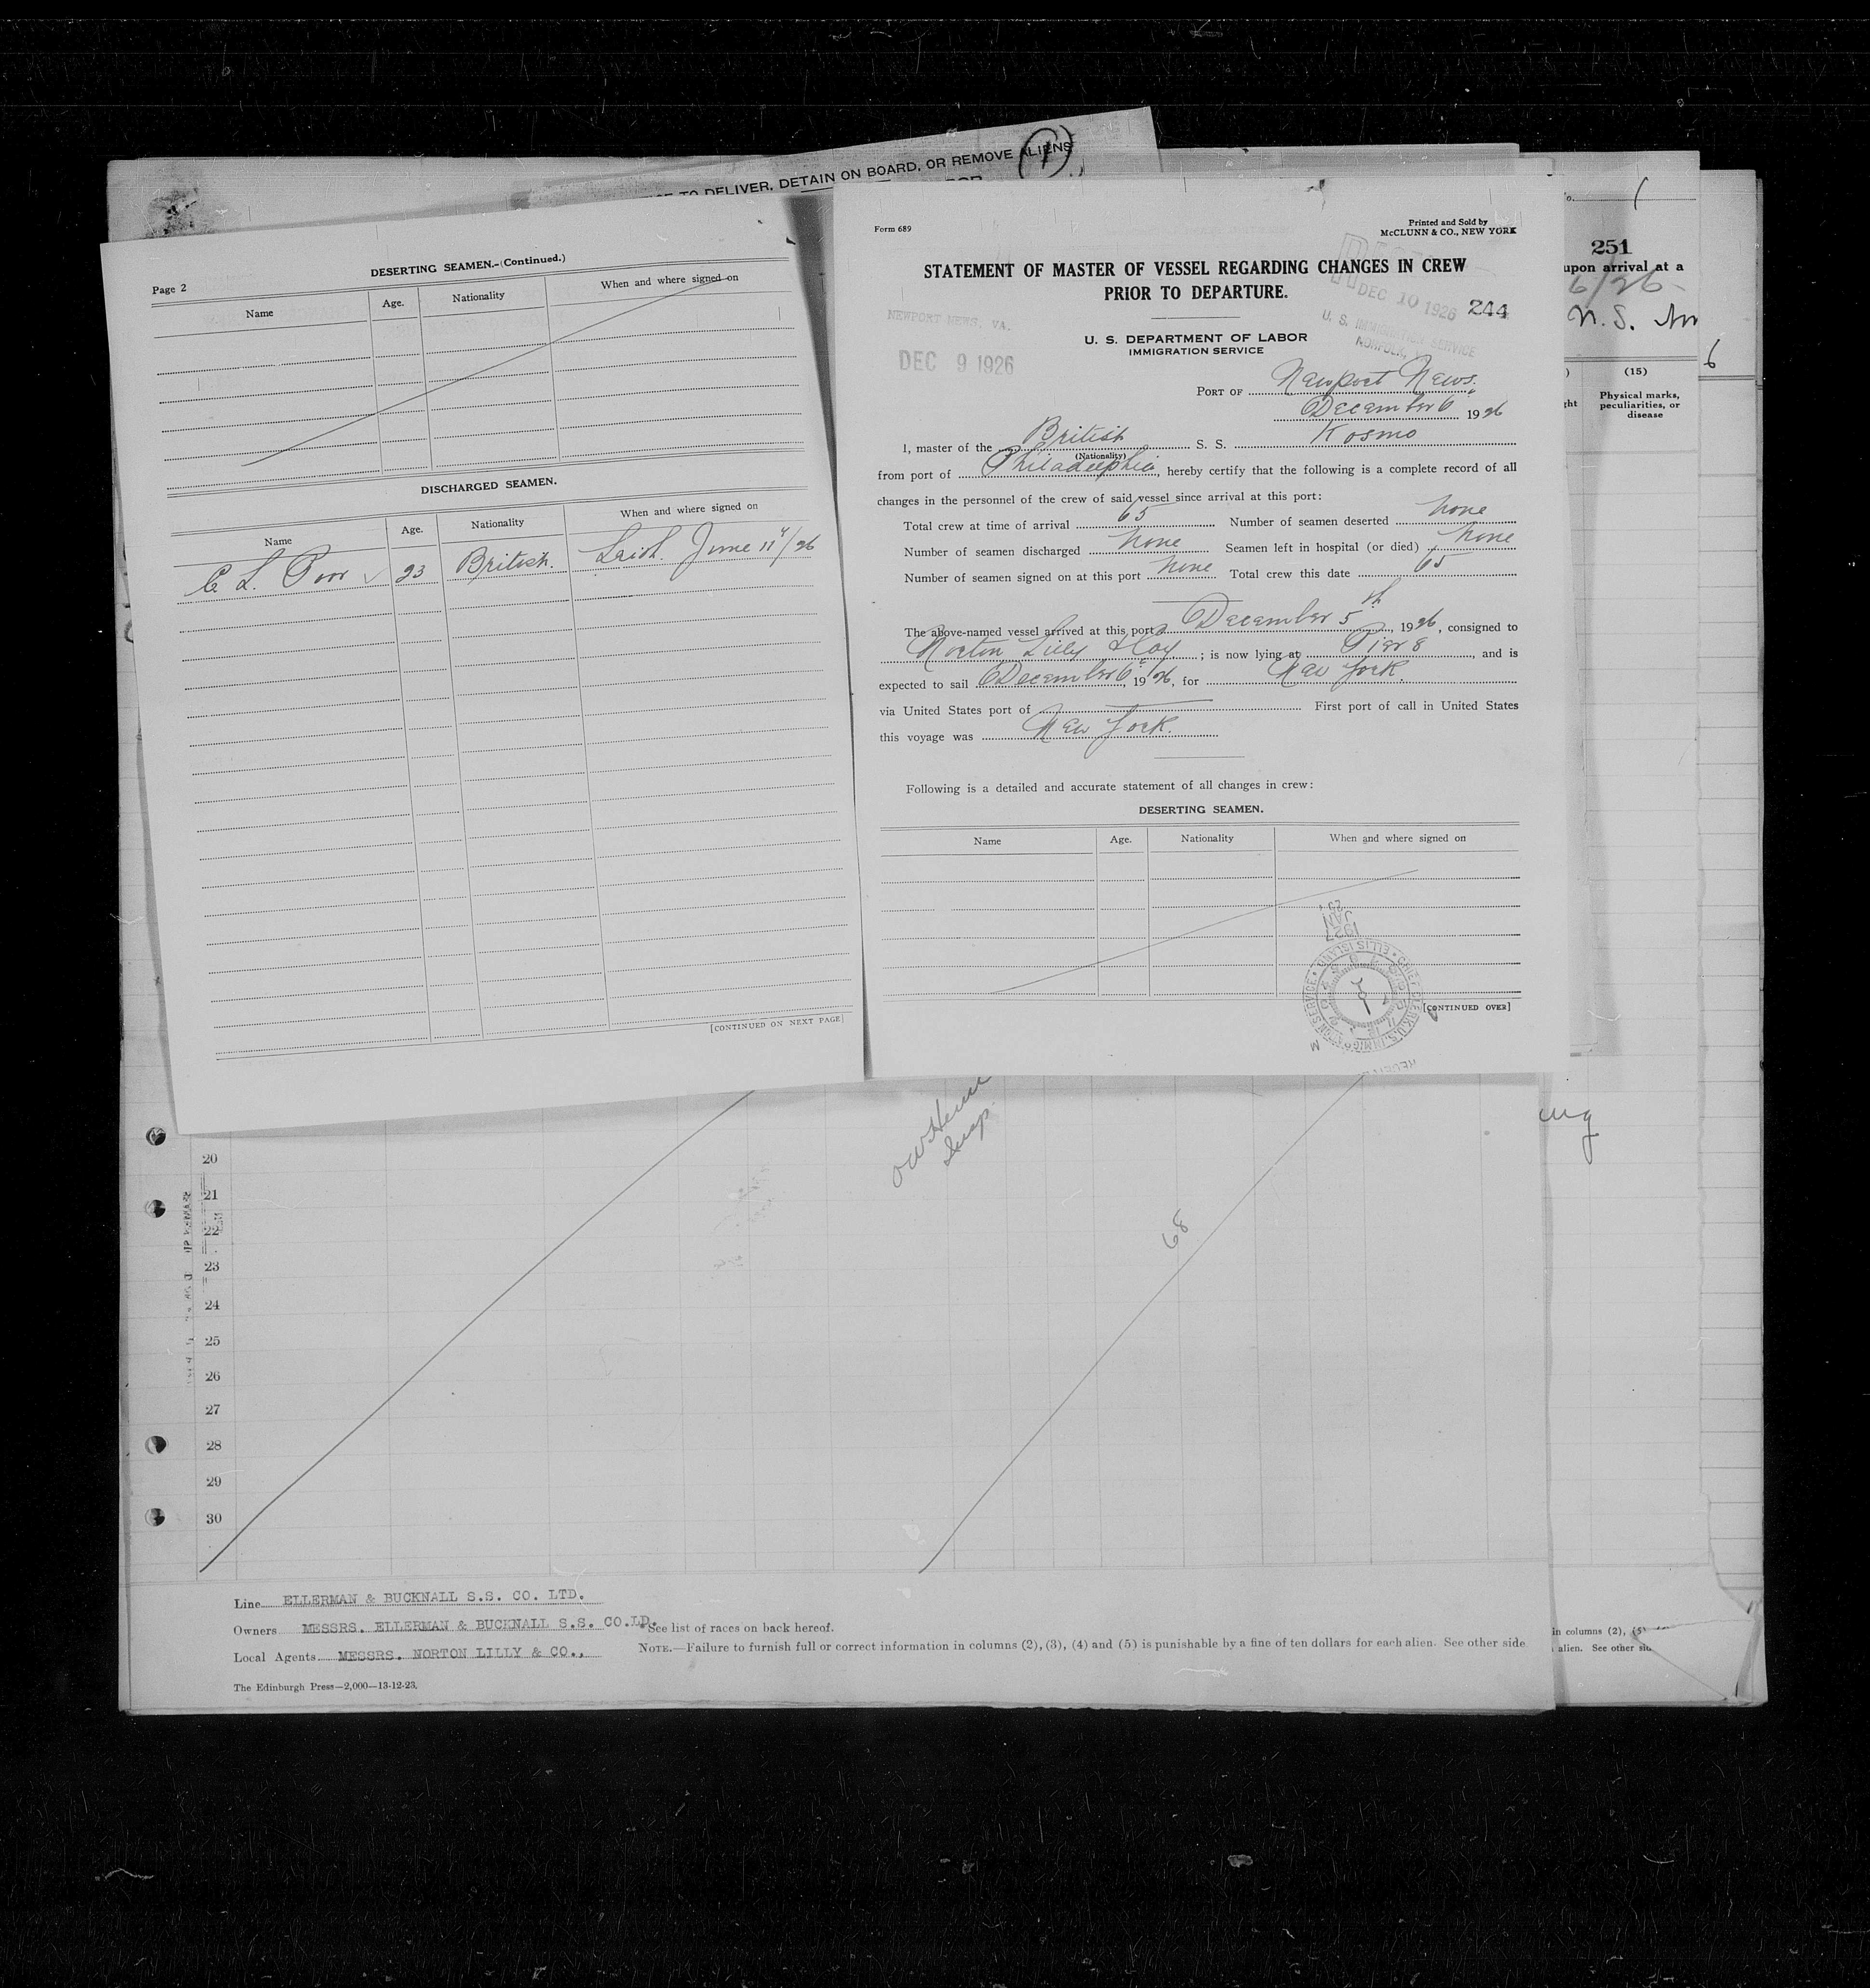 TO DELIVER, DETAIN ON BOARD, OR REMOVE ALIENS
1
Page 2
DESERTING SEAMEN.-(Continued.)
Name Age. Nationality When and where signed on
DISCHARGED SEAMEN.
Name Age. Nationality When and where signed on
C L. Poor 23 British. Leith. June 11/26
[CONTINUED ON NEXT PAGE]
Form 689
Printed and Sold by
McCLUNN & CO., NEW YORK
STATEMENT OF MASTER OF VESSEL REGARDING CHANGES IN CREW
PRIOR TO DEPARTURE.
DEC 10 1926
244
U. S. IMMIGRATION SERVICE
NORFOLK,
NEWPORT NEWS, VA.
DEC 9 1926
U. S. DEPARTMENT OF LABOR
IMMIGRATION SERVICE
PORT OF Newport News.
December 6 1926
I, master of the British S. S. Kosmo
(Nationality)
from port of Philadelphia, hereby certify that the following is a complete record of all
changes in the personnel of the crew of said vessel since arrival at this port:
Total crew at time of arrival 65 Number of seamen deserted None
Number of seamen discharged None Seamen left in hospital (or died) None
Number of seamen signed on at this port None Total crew this date 65
The above-named vessel arrived at this port December 5th, 1926, consigned to
Norton Lilly & Coy; is now lying at Pier 8, and is
expected to sail December 6, 1926, for New York.
via United States port of First port of call in United States
this voyage was New York.
Following is a detailed and accurate statement of all changes in crew:
DESERTING SEAMEN.
Name Age. Nationality When and where signed on
1927
JAN
CHIEF CLERK U.S. IMMIGRATION SERVICE • ELLIS ISLAND
[CONTINUED OVER]
251
upon arrival at a
6/26
N. S.
6
(15)
Physical marks,
peculiarities, or
disease
20
21
22
23
24
25
26
27
28
29
30
Insp.
68
Line ELLERMAN & BUCKNALL S.S. CO. LTD.
Owners MESSRS. ELLERMAN & BUCKNALL S.S. CO.LD.
*See list of races on back hereof.
Local Agents MESSRS. NORTON LILLY & CO.,
NOTE.—Failure to furnish full or correct information in columns (2), (3), (4) and (5) is punishable by a fine of ten dollars for each alien. See other side
The Edinburgh Press—2,000—13-12-23.
in columns (2), (5)
alien. See other